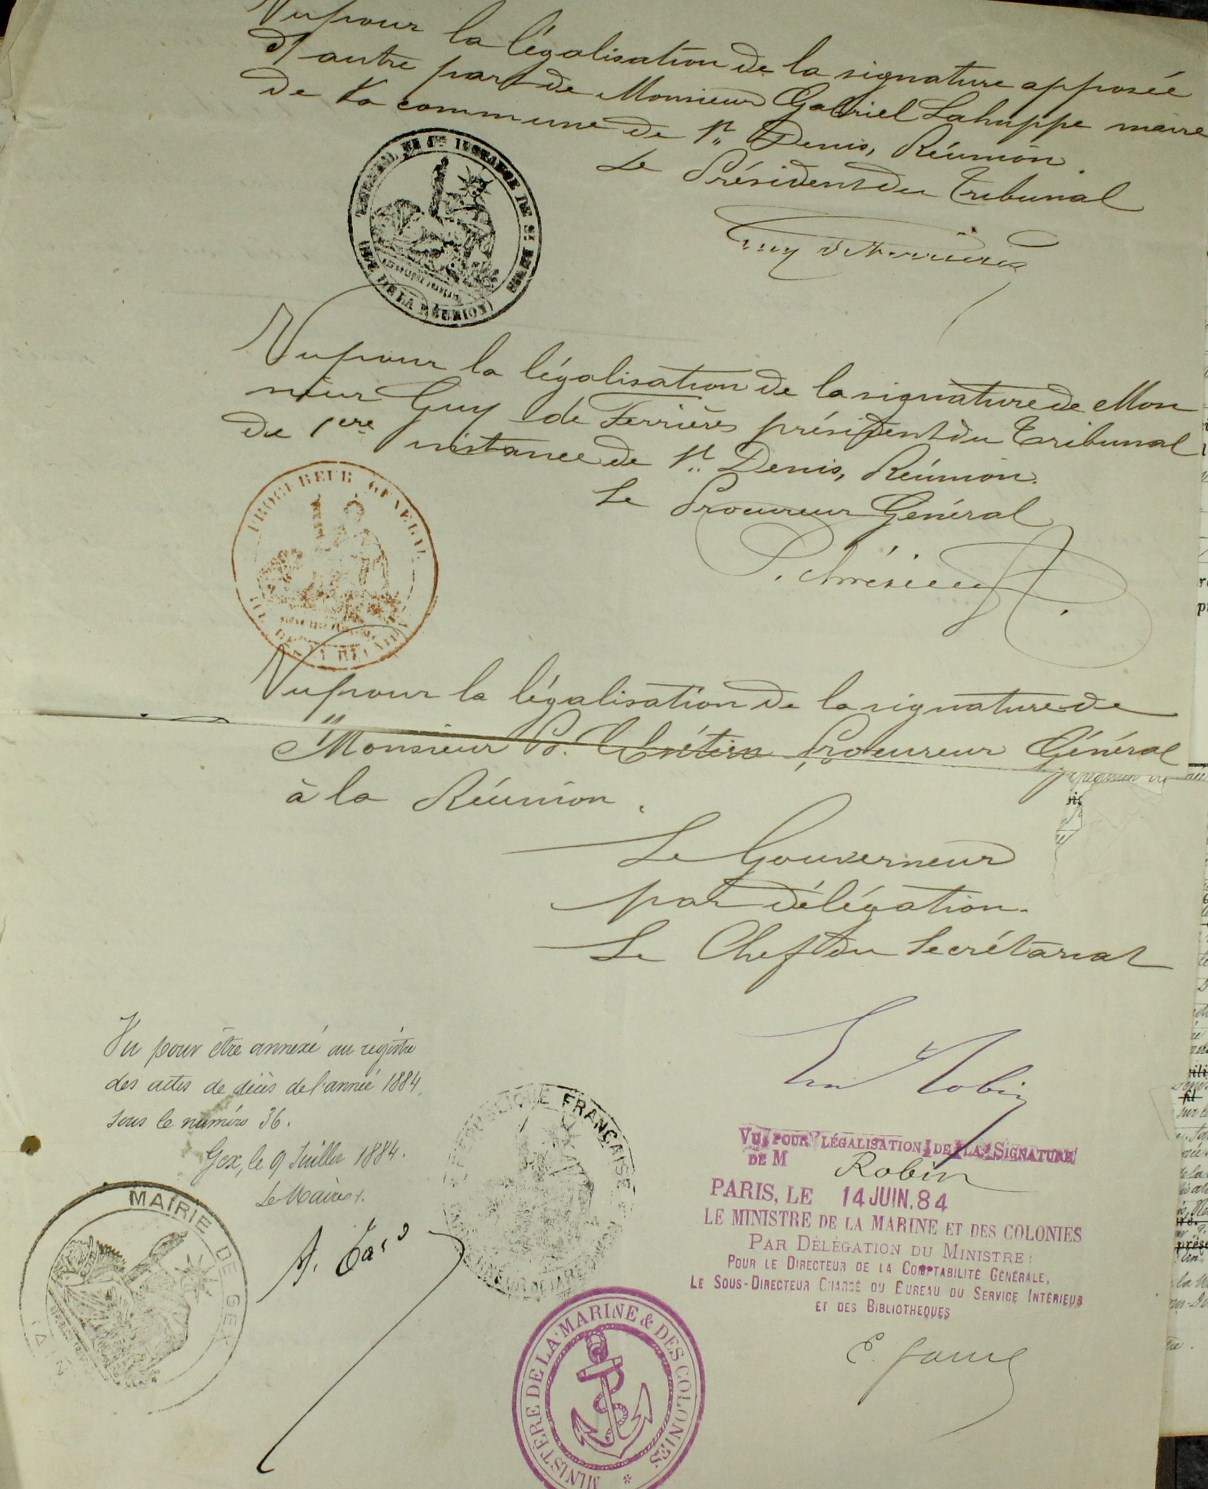 Vu pour la légalisation de la signature apposée
d'autre part de Monsieur Gabriel Lahuppe maire
de la commune de St. Denis, Réunion
Le Président du Tribunal
Guy de Ferrières
TRIBUNAL DE 1re INSTANCE DE St DENIS
(ILE DE LA RÉUNION)
Vu pour la légalisation de la signature de Mon
sieur Guy de Ferrières président du Tribunal
de 1ere instance de St. Denis, Réunion.
Le Procureur Général
PROCUREUR GÉNÉRAL
ILE DE LA RÉUNION
Vu pour la légalisation de la signature de
Monsieur P. Chrétien Procureur Général
à la Réunion.
Le Gouverneur
par délégation.
Le Chef du Secrétariat
Robin
Vu pour être annexé au registre
des actes de décès de l'année 1884
sous le numéro 36.
Gex, le 9 Juillet 1884.
Le Maire.
MAIRIE DE GEX
(AIN)
RÉPUBLIQUE FRANÇAISE
GOUVERNEUR DE LA RÉUNION
VU POUR LÉGALISATION DE LA SIGNATURE
DE M Robin
PARIS, LE 14 JUIN. 84
LE MINISTRE DE LA MARINE ET DES COLONIES
PAR DÉLÉGATION DU MINISTRE:
POUR LE DIRECTEUR DE LA COMPTABILITÉ GÉNÉRALE,
LE SOUS-DIRECTEUR CHARGÉ DU BUREAU DU SERVICE INTÉRIEUR
ET DES BIBLIOTHEQUES
MINISTÈRE DE LA MARINE & DES COLONIES